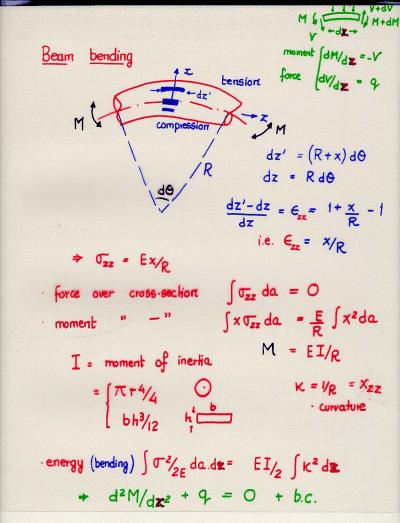 V+dV
M
M+dM
V
dz
moment dM/dz = -V
force dV/dz = q
Beam bending
x
tension
dz'
M
compression
z
M
R
dθ
dz' = (R+x) dθ
dz = R dθ
dz'-dz/dz = ε_zz = 1 + x/R - 1
i.e. ε_zz = x/R
⇒ σ_zz = Ex/R
· force over cross-section ∫σ_zz da = 0
· moment " -"- ∫xσ_zz da = E/R ∫x²da
M = EI/R
I = moment of inertia
= { πr⁴/4
bh³/12
b
h
κ = 1/R = x_zz
· curvature
· energy (bending) ∫σ²/2E da.dz = EI/2 ∫κ² dz
⇒ d²M/dz² + q = 0 + b.c.